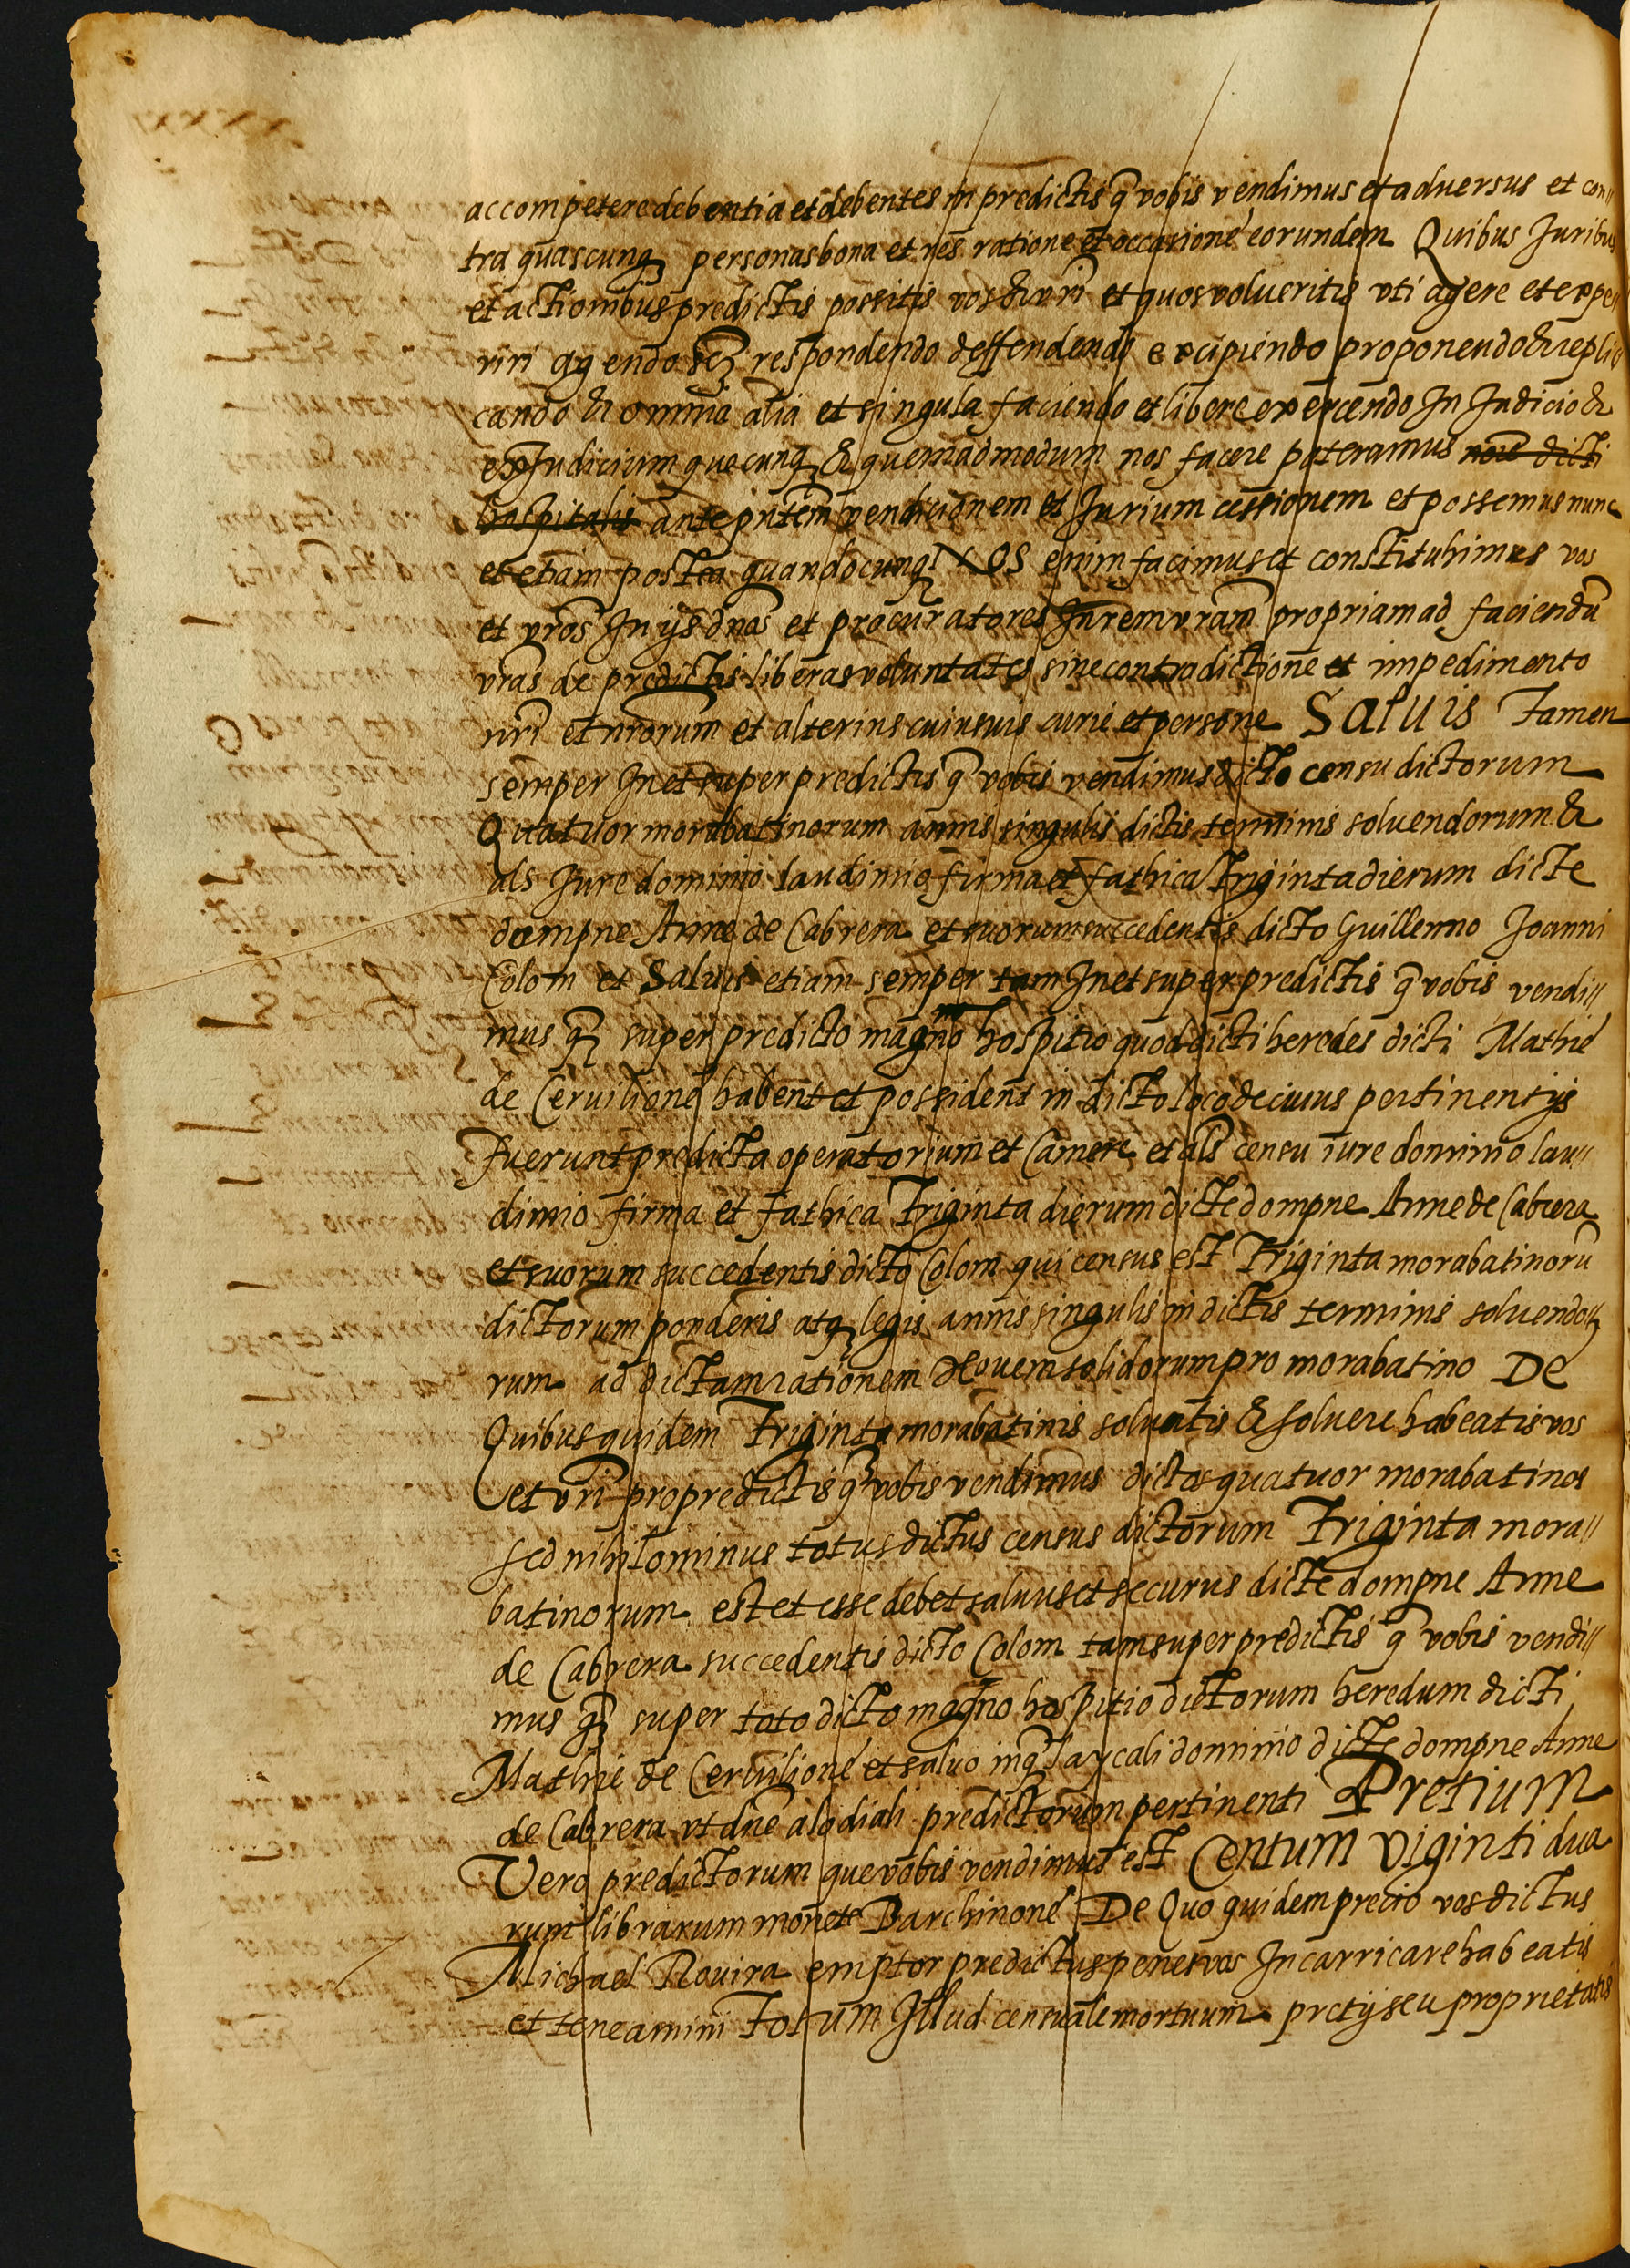 ac competere debentia et debentes in predictis q̃ vobis vendimus et adversus et con//
tra quascunq; personas bona et res ratione et occasione eorundem Quibus Juribus
et actionibus predictis possitis vos & vr̃i et quos volueritis vti agere et expe
riri agendo sc̃z respondendo deffendendo excipiendo proponendo & repli
cando & omnia alia et singula faciendo et libere exercendo In Judicio &
ex Judicium quecunq; & quemadmodum nos facere poteramus noīe dicti
hospitalis ante pn̄tem vendicionem et Jurium cessionem et possemus nunc
et etiam postea quandocunq; NOS enim facimus et constituhimus vos
et vr̃os In ijs dn̄os et procuratores In rem vr̃am propriam ad faciendū
vr̃as de predictis liberas voluntates sine contradictione et impedimento
nr̃i et nr̃orum et alterius cuiusuis curie et persone Saluis Tamen
semper In et super predictis q̃ vobis vendimus dicto censu dictorum
Quatuor morabatinorum annis singulis dictis terminis soluendorum &
als Jure dominio laudimio firma et fathica Triginta dierum dicte
dompne Anne de Cabrera et suorum succedentis dicto Guillermo Joanni
Colom et Saluis etiam semper tam In et super predictis q̃ vobis vendi//
mus q̃ super predicto magno hospitio quod dicti heredes dicti Mathie
de Ceruilione habent et possident in dicto loco de cuius pertinentijs
fuerunt predicta operatorium et Camere et als censu iure dominio lau//
dimio firma et fathica Triginta dierum dicte dompne Anne de Cabrera
et suorum succedentis dicto Colom qui census est Triginta morabatinorū
dictorum ponderis atq; legis annis singulis in dictis terminis soluendo//
rum ad dictam rationem Nouem solidorum pro morabatino De
Quibus quidem Triginta morabatinis soluatis & soluere habeatis vos
et vr̃i pro predictis q̃ vobis vendimus dictos quatuor morabatinos
sed nihilominus totus dictus census dictorum Triginta mora//
batinorum est et esse debet saluus et securus dicte dompne Anne
de Cabrera succedentis dicto Colom tam super predictis q̃ vobis vendi//
mus q̃ super toto dicto magno hospitio dictorum heredum dicti
Mathie de Ceruilione et saluo inq̃ laycali dominio dicte dompne Anne
de Cabrera vt dn̄e alodiali predictorum pertinenti Pretium
Vero predictorum que vobis vendimus est Centum viginti dua
rum librarum monete Barchinone De Quo quidem precio vos dictus
Michael Rouira emptor predictus penes vos Incarricare habeatis
et teneamini Totum Illud censuale mortuum pretij seu proprietatis